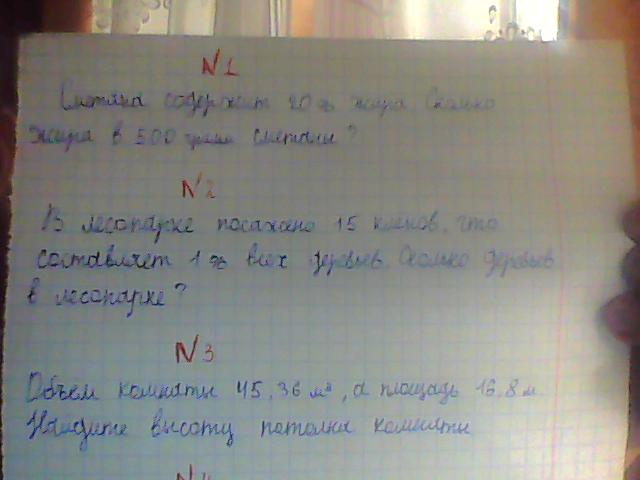 N1
Сметана содержит 20% жира. Сколько
жира в 500 грамм сметаны?
N2
В лесопарке посажено 15 кленов, что
составляет 1% всех деревьев. Сколько деревьев
в лесопарке?
N3
Объём комнаты 45,36 м³, а площадь 16,8 м
Найдите высоту потолка комнаты